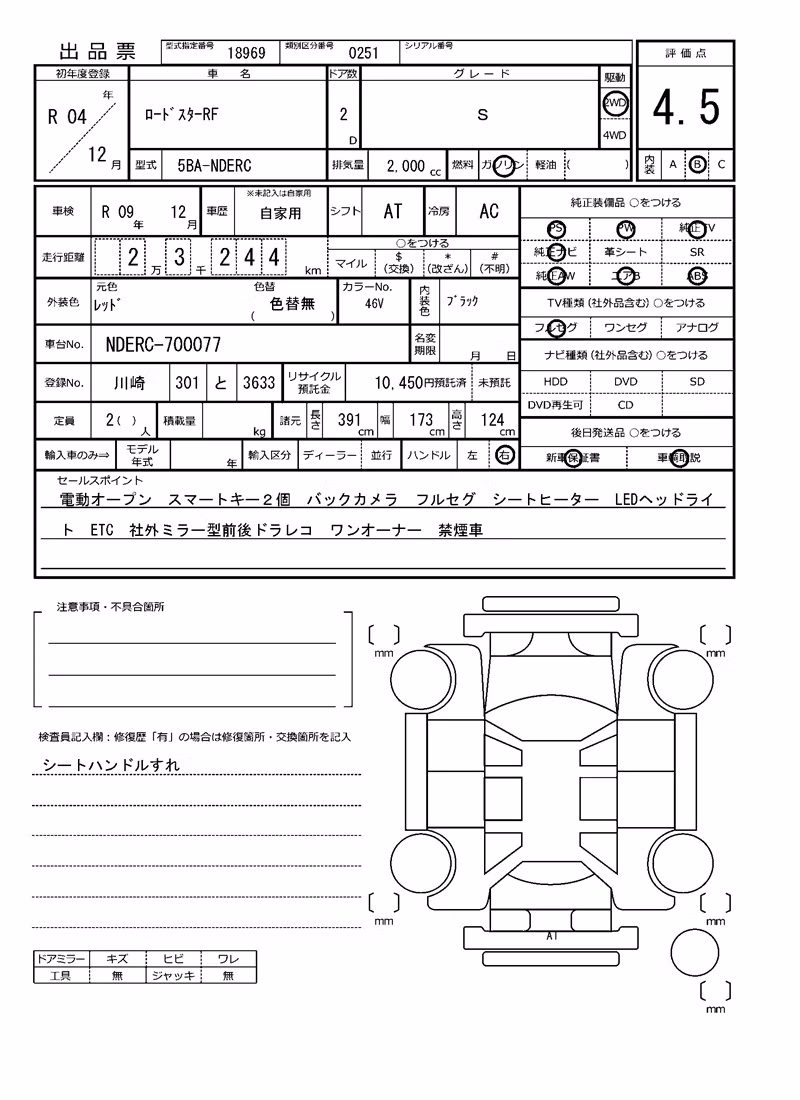 出品票 型式指定番号 18969 類別区分番号 0251 シリアル番号
評価点
4.5
内装 A B C
初年度登録 車名 ドア数 グレード 駆動
R 04 年 12 月 ﾛｰﾄﾞｽﾀｰRF 2 D S 2WD 4WD
型式 5BA-NDERC 排気量 2,000 cc 燃料 ガソリン 軽油 ( )
車検 R 09 年 12 月 車歴 ※未記入は自家用 自家用 シフト AT 冷房 AC
走行距離 2 万 3 千 2 4 4 km
○をつける
マイル $(交換) *(改ざん) #(不明)
外装色 元色 ﾚｯﾄﾞ 色替 ( 色替無 ) カラーNo. 46V 内装色 ﾌﾞﾗｯｸ
車台No. NDERC-700077 名変期限 月 日
登録No. 川崎 301 と 3633 リサイクル預託金 10,450円預託済 未預託
定員 2 ( ) 人 積載量 kg 諸元 長さ 391 cm 幅 173 cm 高さ 124 cm
輸入車のみ⇒ モデル年式 年 輸入区分 ディーラー 並行 ハンドル 左 右
純正装備品 ○をつける
PS PW 純正TV
純正ナビ 革シート SR
純正AW エアB ABS
TV種類(社外品含む) ○をつける
フルセグ ワンセグ アナログ
ナビ種類(社外品含む) ○をつける
HDD DVD SD
DVD再生可 CD
後日発送品 ○をつける
新車保証書 車輌取説
セールスポイント
電動オープン スマートキー2個 バックカメラ フルセグ シートヒーター LEDヘッドライ
ト ETC 社外ミラー型前後ドラレコ ワンオーナー 禁煙車
注意事項・不具合箇所
検査員記入欄：修復歴「有」の場合は修復箇所・交換箇所を記入
シートハンドルすれ
ドアミラー キズ ヒビ ワレ
工具 無 ジャッキ 無
mm mm
mm mm
AT
mm